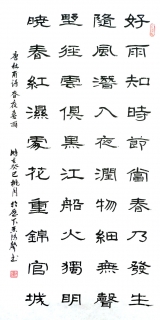 好雨知時節當春乃發生
隨風潛入夜潤物細無聲
野徑雲俱黑江船火獨明
曉看紅濕處花重錦官城
唐杜甫詩春夜喜雨
癸巳桃月